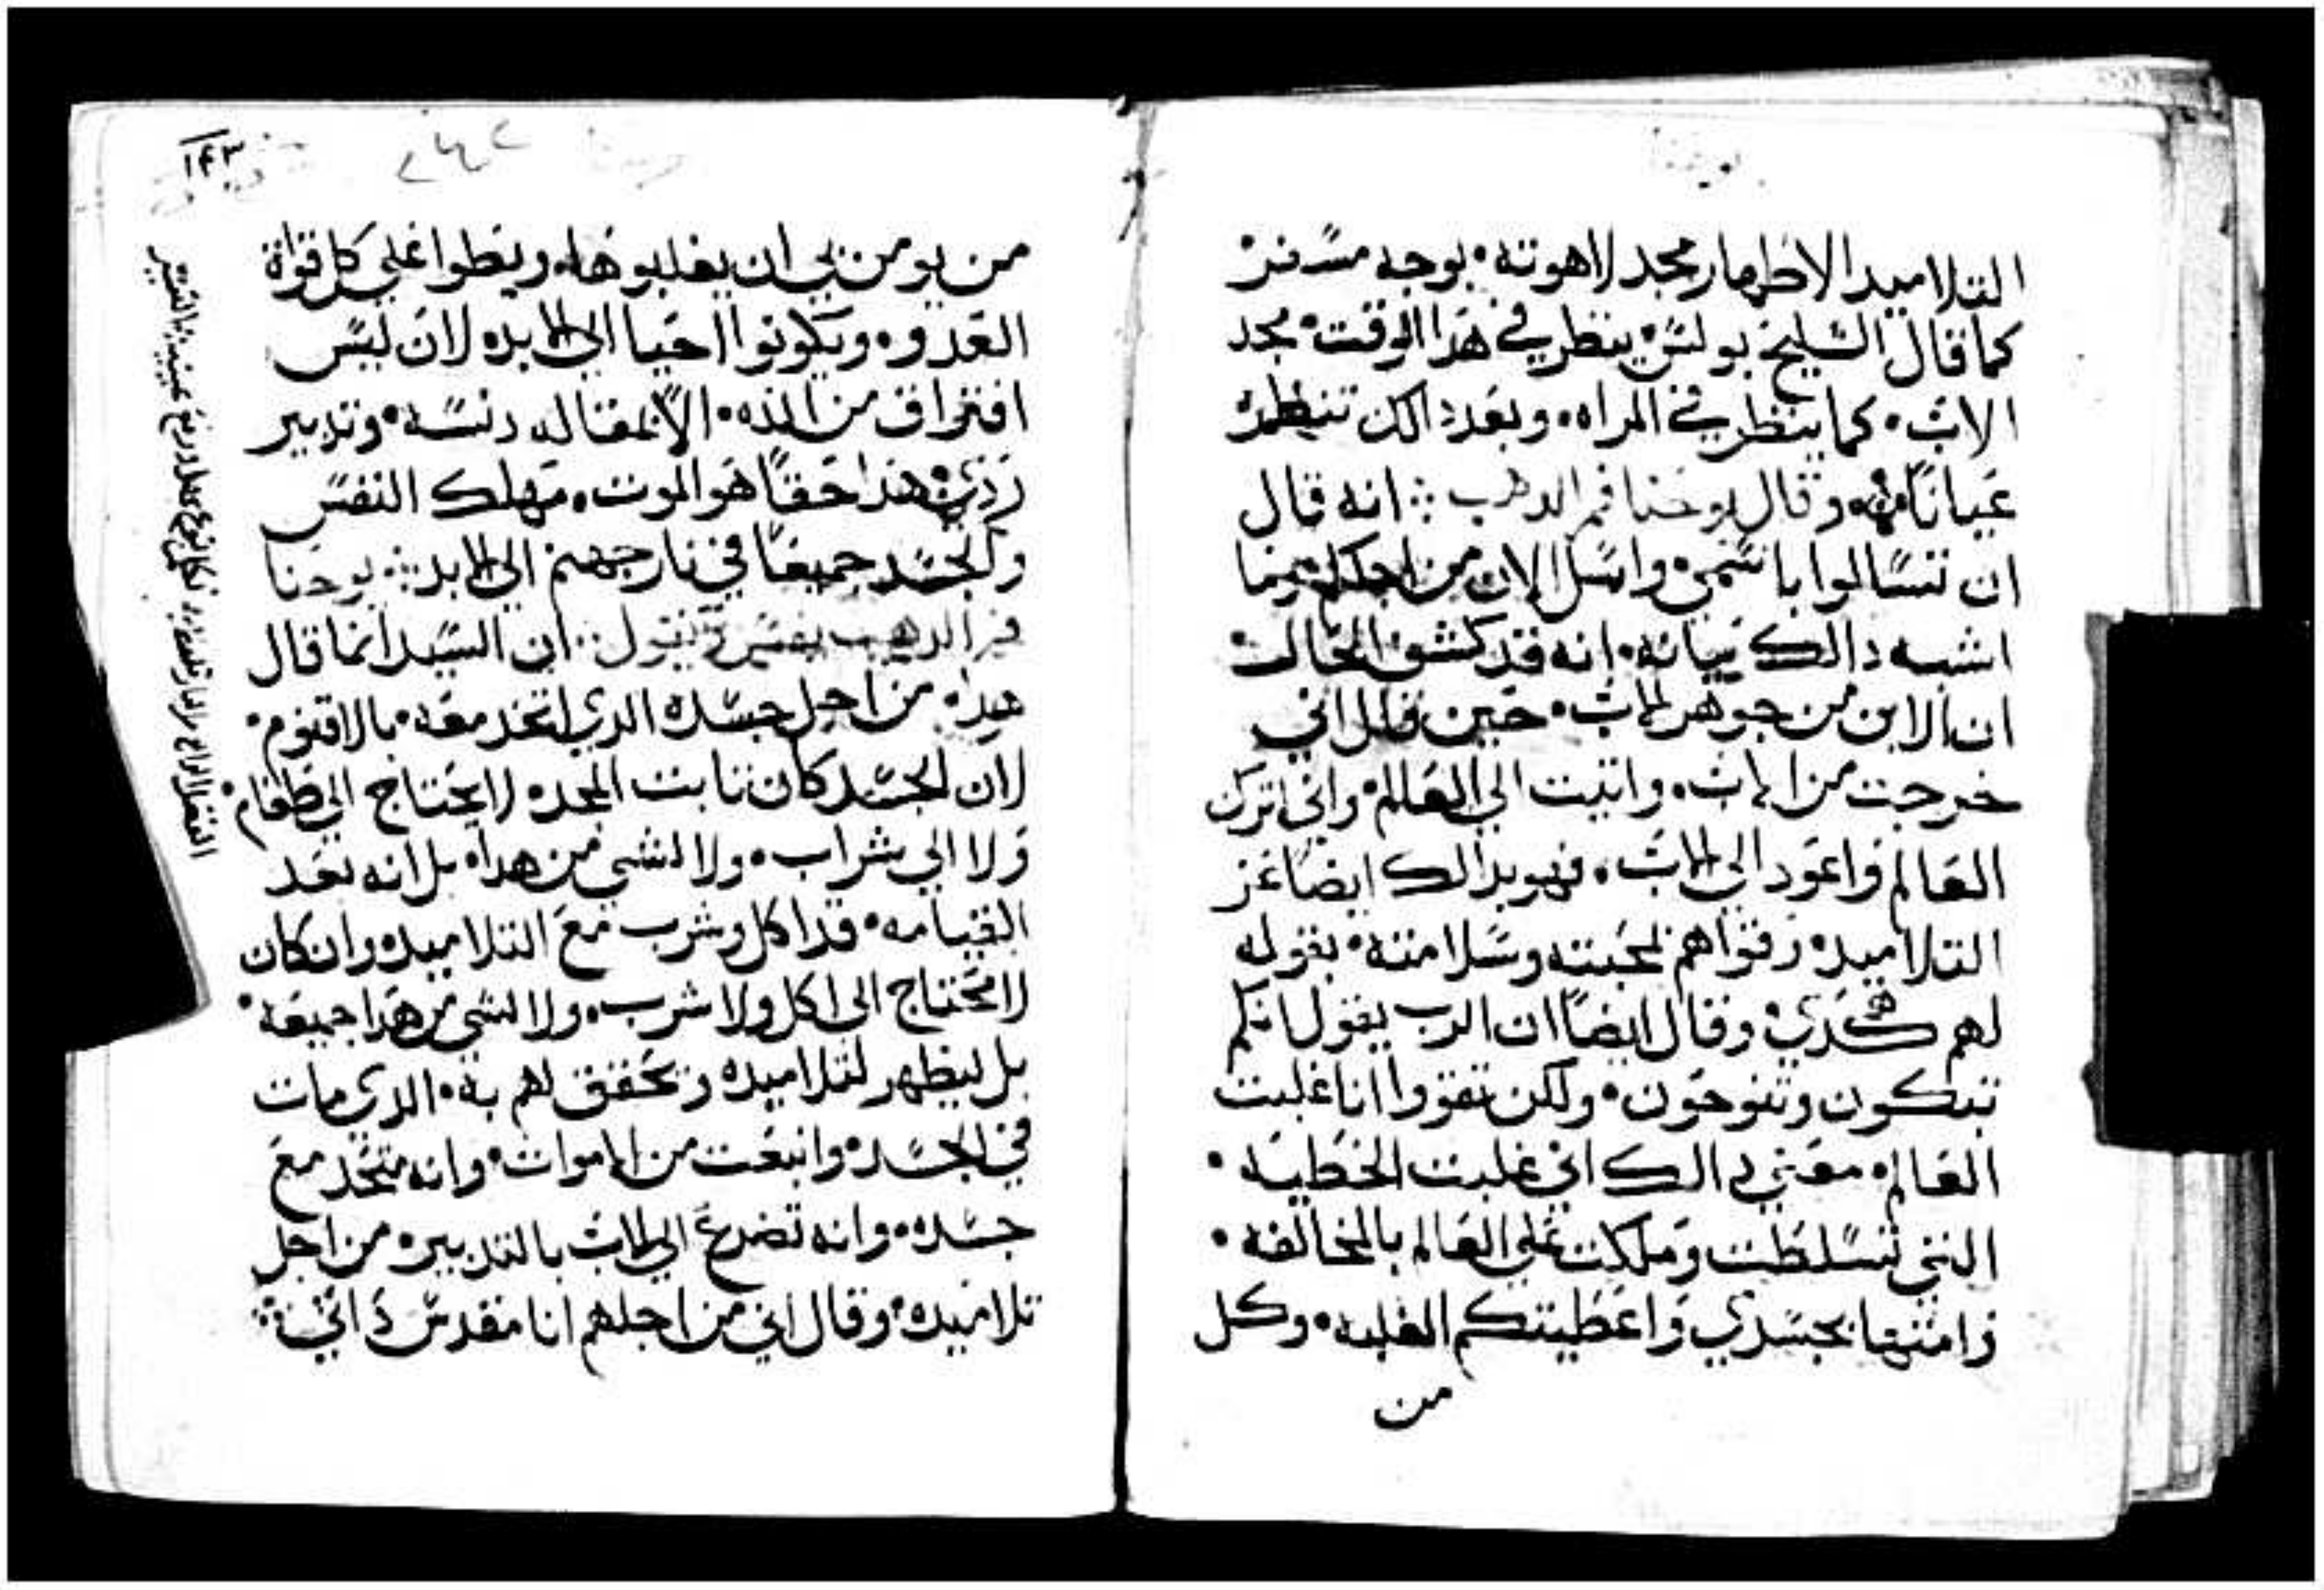 التلاميد الاظهار مجد لاهوته • بوجه مسفر •
كما قال الشليخ بولس • ينظر في هدا الوقت • مجد
الاب • كما ينظر في المراه • وبعد دالك تنظره
عيانا • وقال يوحنا فم الدهب ⁘ انه قال
ان تسالوا باسمي • واسل الان من اجلكم
اشبه دالك بيانه • انه قد كشف الحال •
ان الابن من جوهر الاب • حين قال اني
خرجت من الاب • واتيت الي العالم • واني اترك
العالم واعود الي الاب • فهو بدالك ايضا عز
التلاميد • وقواهم لمحبته وسلامته • بقوله
لهم هكدي • وقال ايضا ان الرب يقول انكم
تبكون وتنوحون • ولكن تقووا انا غلبت
العالم • معني دالك اني غلبت الخطيه •
التي تسلطت وملكت علي العالم بالمخالفه •
وامتها بجسدي واعطيتكم الغلبه • وكل
من
٢٤٢
١٤٣
من يومن بي ان يغلبوها • ويطوا علي كل قواة
العدو • ويكونوا احيا الي الابد • لان ليس
افتراق من الله • الا بمقاله دنسه • وتدبير
ردي • هدا حقا هو الموت • مهلك النفس
والجسد جميعا في نار جهنم الي الابد ⁘ يوحنا
فم الدهب يفسر ويقول ⁘ ان السيد انما قال
هدا • من اجل جسده الدي اتخد معه • بالاقنوم •
لان الجسد كان تابت المجد • لا يحتاج الي طعام •
ولا الي شراب • ولا لشي من هدا • بل انه بعد
القيامه • قد اكل وشرب مع التلاميد • وان كان
لا محتاج الي اكل ولا شرب • ولا لشي من هدا جميعه •
بل ليظهر لتلاميده ويحقق لهم به • الدي مات
في الجسد • وانبعت من الاموات • وانه متحد مع
جسده • وانه تضرع الي الاب بالتدبير • من اجل
تلاميده • وقال اني من اجلهم انا مقدس داتي ⁘